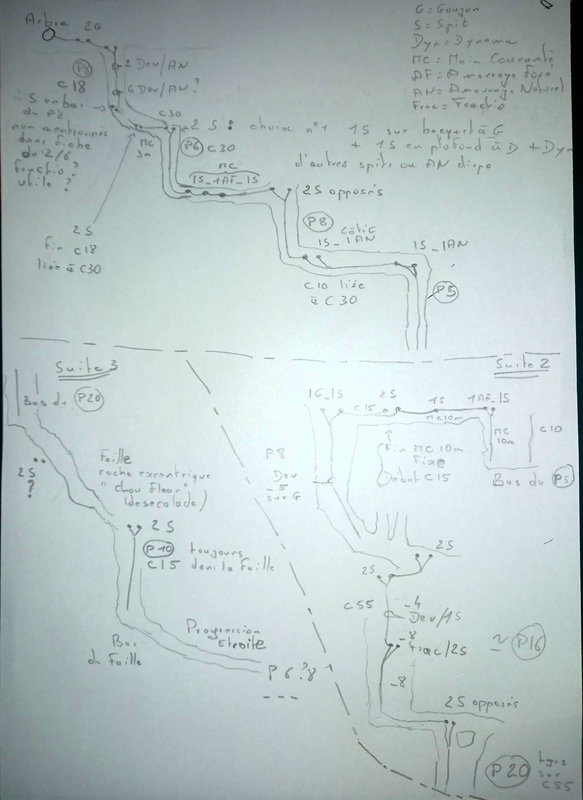 Arbre
2G
G = Goujon
S = Spit
Dyn = Dyneema
MC = Main Courante
AF = Amarrage Foré
AN = Amarrage Naturel
Frac = Fractio
P8
C18
2 Dev/AN
6 Dev/AN ?
1S en bas
du P8
non mentionnés
dans fiche
du 2/6
fractio ?
utile ?
C30
MC
3m
2 S : choix n°1 1S sur becquet à G
+ 1S en plafond à D + Dyn
d'autres spits ou AN dispo
P6
C30
MC
1S_1AF_1S
2S opposés
2S
fin C18
liée à C30
P8
côté G
1S_1AN
1S_1AN
C10 liée
à C30
P5
Suite 3
Suite 2
Bas du P20
2S
?
Faille
roche excentrique
"chou fleur"
(désescalade)
2 S
P10
C15
toujours
dans la Faille
Bas
de Faille
Progression
Etroite
P6 ? 8
1G_1S
C15
2S
1S
1AF_1S
MC 10m
MC
10m
C10
Fin MC 10m
Fixe
Début C15
Bas du P5
P8
Dev
-5
sur G
2S
2S
C55
-4
Dev/1S
-8
Frac/2S
-8
~ P16
2S opposés
P20
tjrs
sur
C55